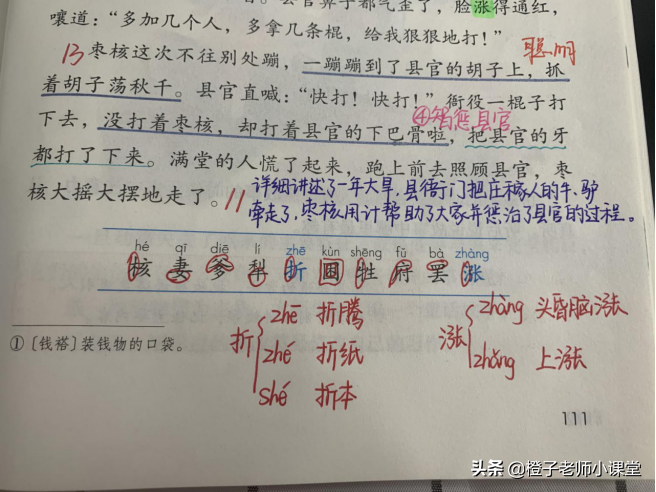 县官鼻子都气歪了，脸涨得通红，
嚷道：“多加几个人，多拿几条棍，给我狠狠地打！”
13 枣核这次不往别处蹦，一蹦蹦到了县官的胡子上，抓
聪明
着胡子荡秋千。县官直喊：“快打！快打！”衙役一棍子打
④智惩县官
下去，没打着枣核，却打着县官的下巴骨啦，把县官的牙
都打了下来。满堂的人慌了起来，跑上前去照顾县官，枣
核大摇大摆地走了。11
详细讲述了一年大旱，县衙门把庄稼人的牛、驴
牵走了，枣核用计帮助了大家并惩治了县官的过程。
hé qī diē lí zhē kùn shēng fǔ bà zhàng
核 妻 爹 犁 折 困 牲 府 罢 涨
折
zhē 折腾
zhé 折纸
shé 折本
涨
zhàng 头昏脑涨
zhǎng 上涨
①〔钱褡〕装钱物的口袋。
111
头条 @橙子老师小课堂